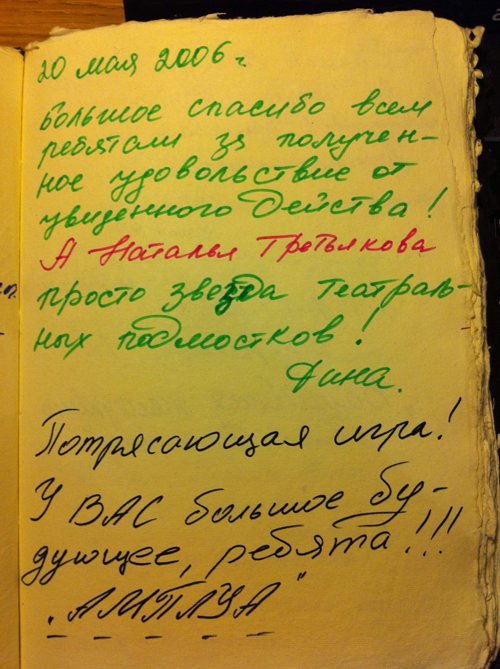 20 мая 2006 г.
Большое спасибо всем
ребятам за получен-
ное удовольствие от
увиденного действа!
А Наталья Третьякова
просто звезда театраль-
ных подмостков!
Дина.
Потрясающая игра!
У ВАС большое бу-
дующее, ребята!!!
„АМПЛУА"